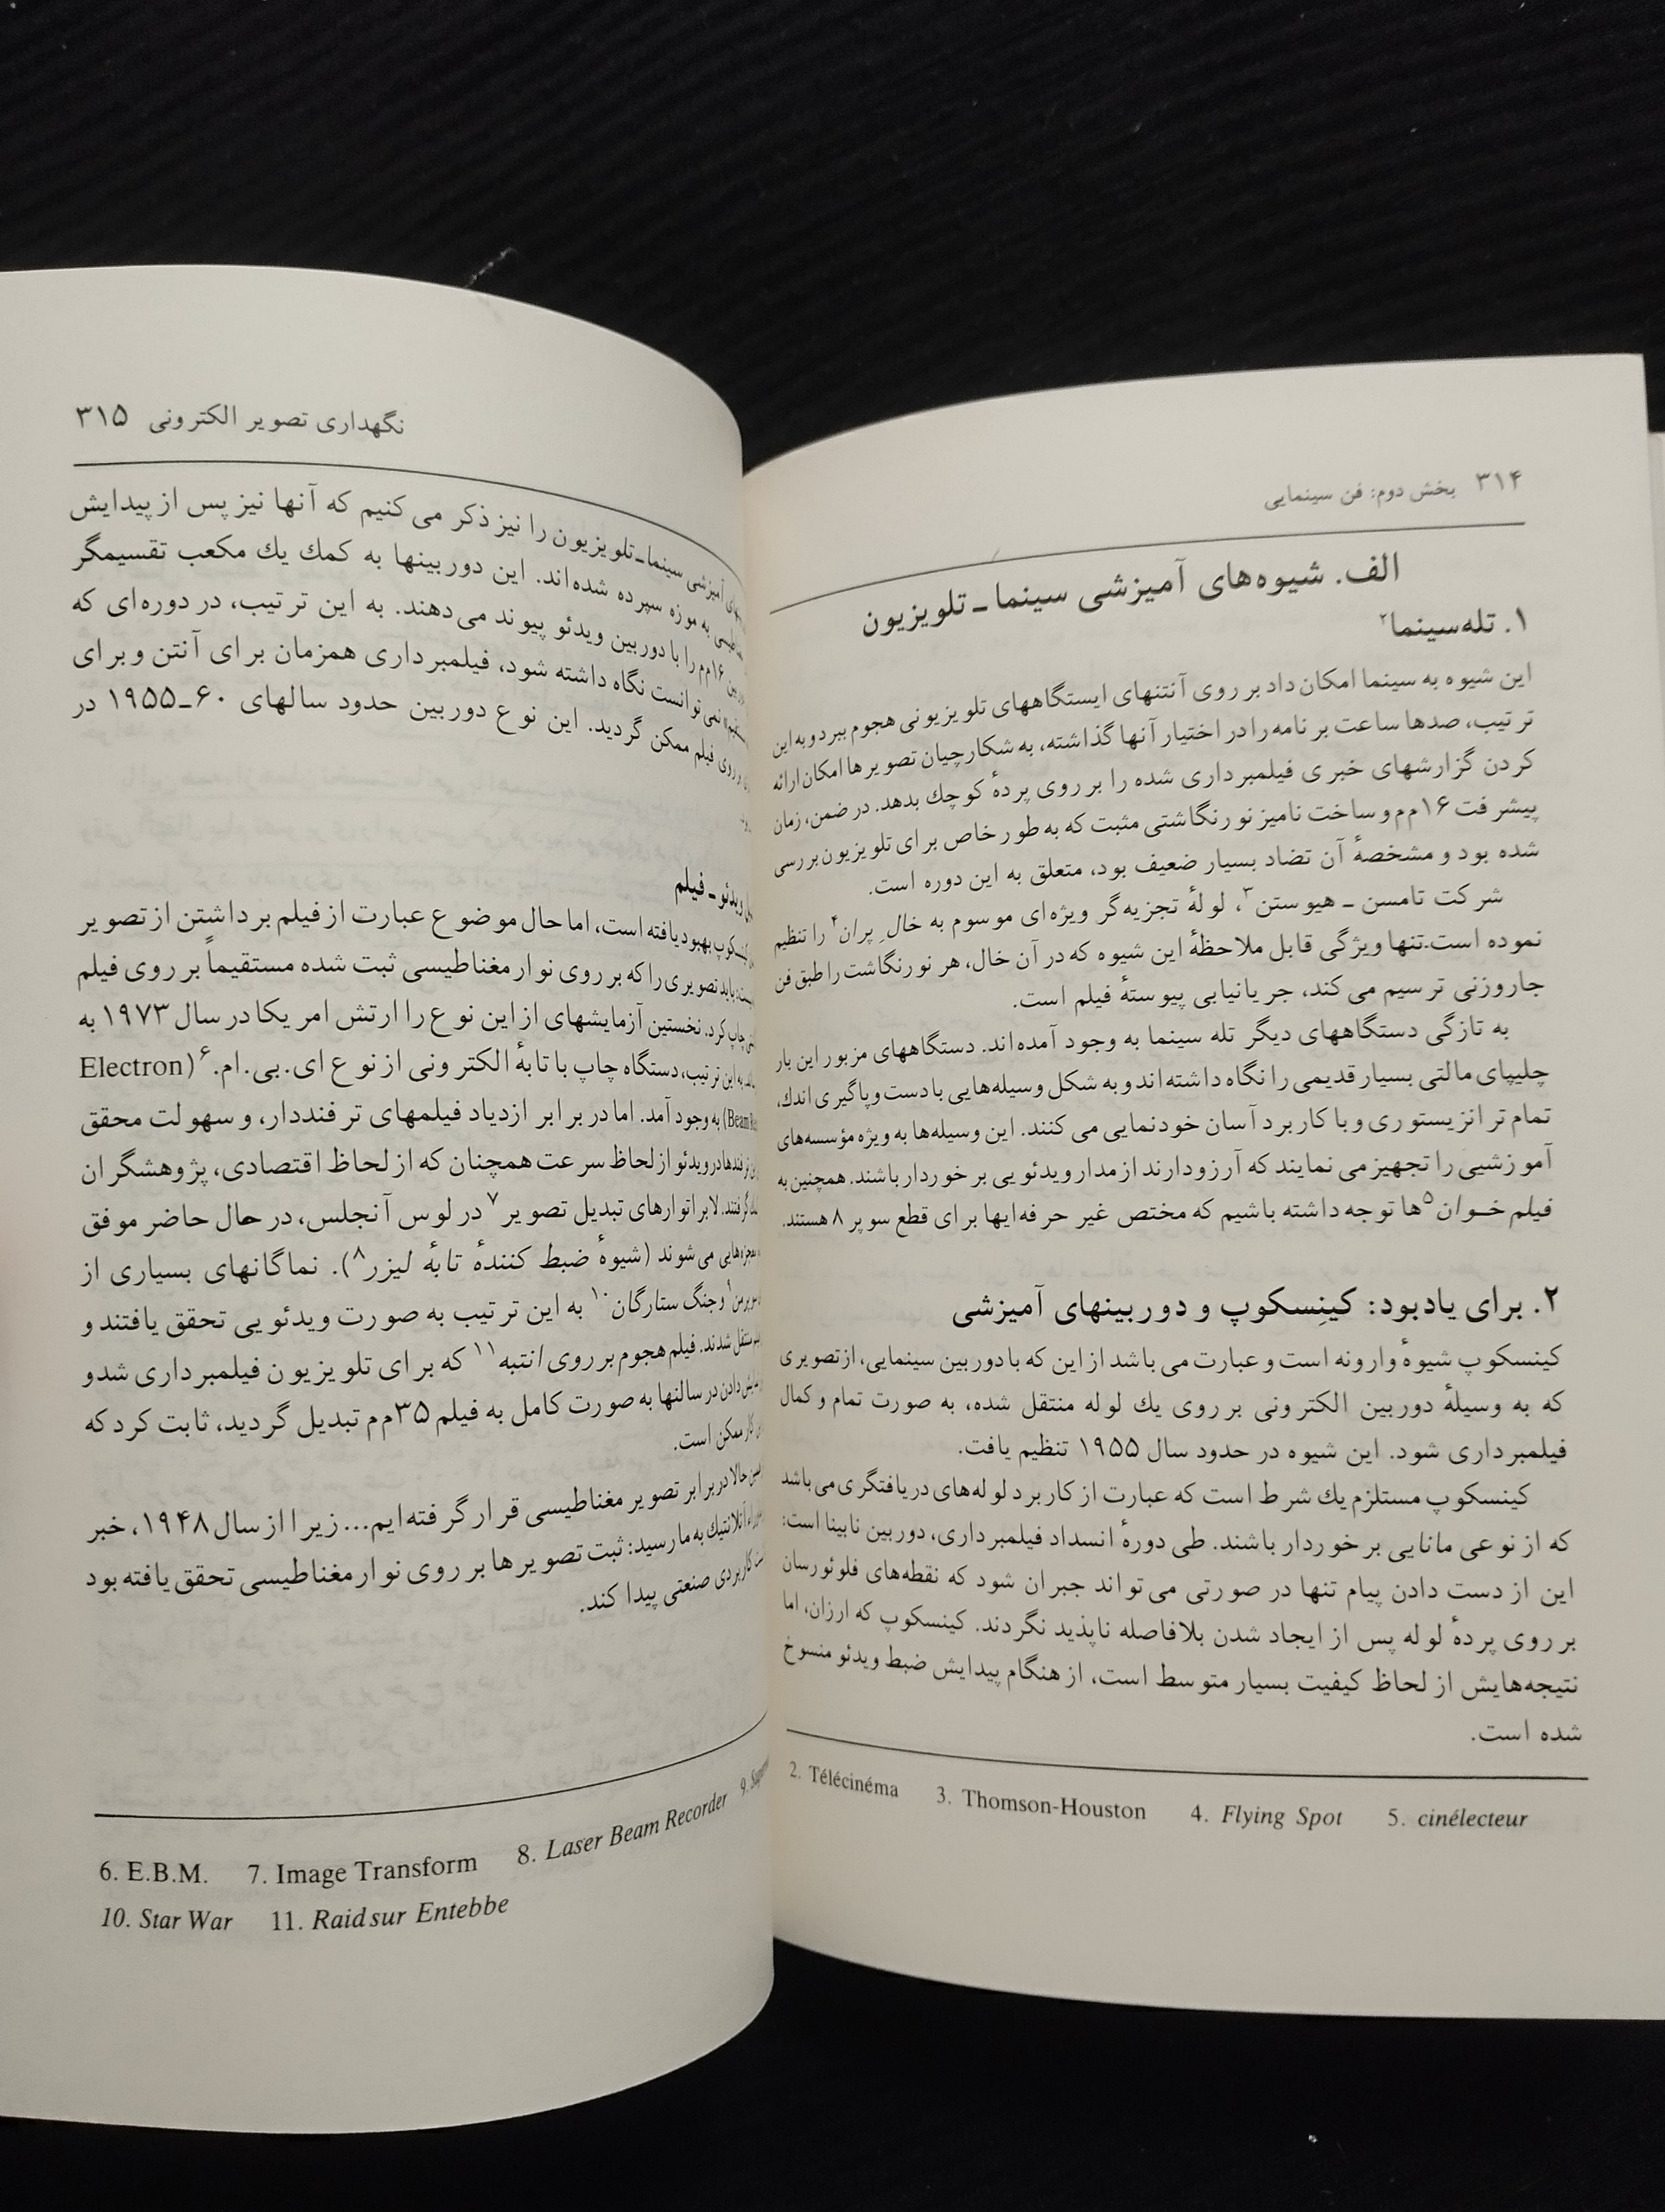 ۳۱۴ بخش دوم: فن سینمایی
الف. شیوه‌های آمیزشی سینما ـ تلویزیون
۱. تله‌سینما۲
این شیوه به سینما امکان داد بر روی آنتنهای ایستگاههای تلویزیونی هجوم ببرد و به این
ترتیب، صدها ساعت برنامه را در اختیار آنها گذاشته، به شکارچیان تصویرها امکان ارائه
کردن گزارشهای خبری فیلمبرداری شده را بر روی پردهٔ کوچك بدهد. در ضمن، زمان
پیشرفت ۱۶م‌م و ساخت نامیز نورنگاشتی مثبت که به طور خاص برای تلویزیون بررسی
شده بود و مشخصهٔ آن تضاد بسیار ضعیف بود، متعلق به این دوره است.
شرکت تامسن ـ هیوستن۳، لولهٔ تجزیه‌گر ویژه‌ای موسوم به خالِ پران۴ را تنظیم
نموده است.تنها ویژگی قابل ملاحظهٔ این شیوه که در آن خال، هر نورنگاشت را طبق فن
جاروزنی ترسیم می‌کند، جریانیابی پیوستهٔ فیلم است.
به تازگی دستگاههای دیگر تله سینما به وجود آمده‌اند. دستگاههای مزبور این بار
چلیپای مالتی بسیار قدیمی را نگاه داشته‌اند و به شکل وسیله‌هایی با دست و پاگیری اندك،
تمام ترانزیستوری و با کاربرد آسان خودنمایی می‌کنند. این وسیله‌ها به ویژه مؤسسه‌های
آموزشیی را تجهیز می‌نمایند که آرزو دارند از مدار ویدئویی برخوردار باشند. همچنین به
فیلم خـوان۵ها توجه داشته باشیم که مختص غیر حرفه‌ایها برای قطع سوپر ۸ هستند.
۲. برای یادبود: کینِسکوپ و دوربینهای آمیزشی
کینسکوپ شیوهٔ وارونه است و عبارت می‌باشد از این که با دوربین سینمایی، از تصویری
که به وسیلهٔ دوربین الکترونی بر روی یك لوله منتقل شده، به صورت تمام و کمال
فیلمبرداری شود. این شیوه در حدود سال ۱۹۵۵ تنظیم یافت.
کینسکوپ مستلزم یك شرط است که عبارت از کاربرد لوله‌های دریافتگری می‌باشد
که از نوعی مانایی برخوردار باشند. طی دورهٔ انسداد فیلمبرداری، دوربین نابینا است:
این از دست دادن پیام تنها در صورتی می‌تواند جبران شود که نقطه‌های فلوئورسان
بر روی پردهٔ لوله پس از ایجاد شدن بلافاصله ناپدید نگردند. کینسکوپ که ارزان، اما
نتیجه‌هایش از لحاظ کیفیت بسیار متوسط است، از هنگام پیدایش ضبط ویدئو منسوخ
شده است.
2. Télécinéma 3. Thomson-Houston 4. Flying Spot 5. cinélecteur
نگهداری تصویر الکترونی ۳۱۵
آمیزشی سینما ـ تلویزیون را نیز ذکر می‌کنیم که آنها نیز پس از پیدایش
به موزه سپرده شده‌اند. این دوربینها به کمك یك مکعب تقسیمگر
۱۶م‌م را با دوربین ویدئو پیوند می‌دهند. به این ترتیب، در دوره‌ای که
نمی‌توانست نگاه داشته شود، فیلمبرداری همزمان برای آنتن و برای
روی فیلم ممکن گردید. این نوع دوربین حدود سالهای ۶۰ـ۱۹۵۵ در
ویدئو ـ فیلم
بهبود یافته است، اما حال موضوع عبارت از فیلم برداشتن از تصویر
باید تصویری را که بر روی نوار مغناطیسی ثبت شده مستقیماً بر روی فیلم
چاپ کرد. نخستین آزمایشهای از این نوع را ارتش امریکا در سال ۱۹۷۳ به
به این ترتیب، دستگاه چاپ با تابهٔ الکترونی از نوع ای.بی.ام.۶ (Electron
Beam) به وجود آمد. اما در برابر ازدیاد فیلمهای ترفنددار، و سهولت محقق
ترفندها در ویدئو از لحاظ سرعت همچنان که از لحاظ اقتصادی، پژوهشگران
گرفتند. لابراتوارهای تبدیل تصویر۷ در لوس آنجلس، در حال حاضر موفق
می‌شوند (شیوهٔ ضبط کنندهٔ تابهٔ لیزر۸). نماگانهای بسیاری از
و جنگ ستارگان۱۰ به این ترتیب به صورت ویدئویی تحقق یافتند و
منتقل شدند. فیلم هجوم بر روی انتبه۱۱ که برای تلویزیون فیلمبرداری شد و
دادن در سالنها به صورت کامل به فیلم ۳۵م‌م تبدیل گردید، ثابت کرد که
کار ممکن است.
حالا در برابر تصویر مغناطیسی قرار گرفته‌ایم... زیرا از سال ۱۹۴۸، خبر
آتلانتیك به ما رسید: ثبت تصویرها بر روی نوار مغناطیسی تحقق یافته بود
کاربردی صنعتی پیدا کند.
6. E.B.M. 7. Image Transform 8. Laser Beam Recorder 9.
10. Star War 11. Raid sur Entebbe